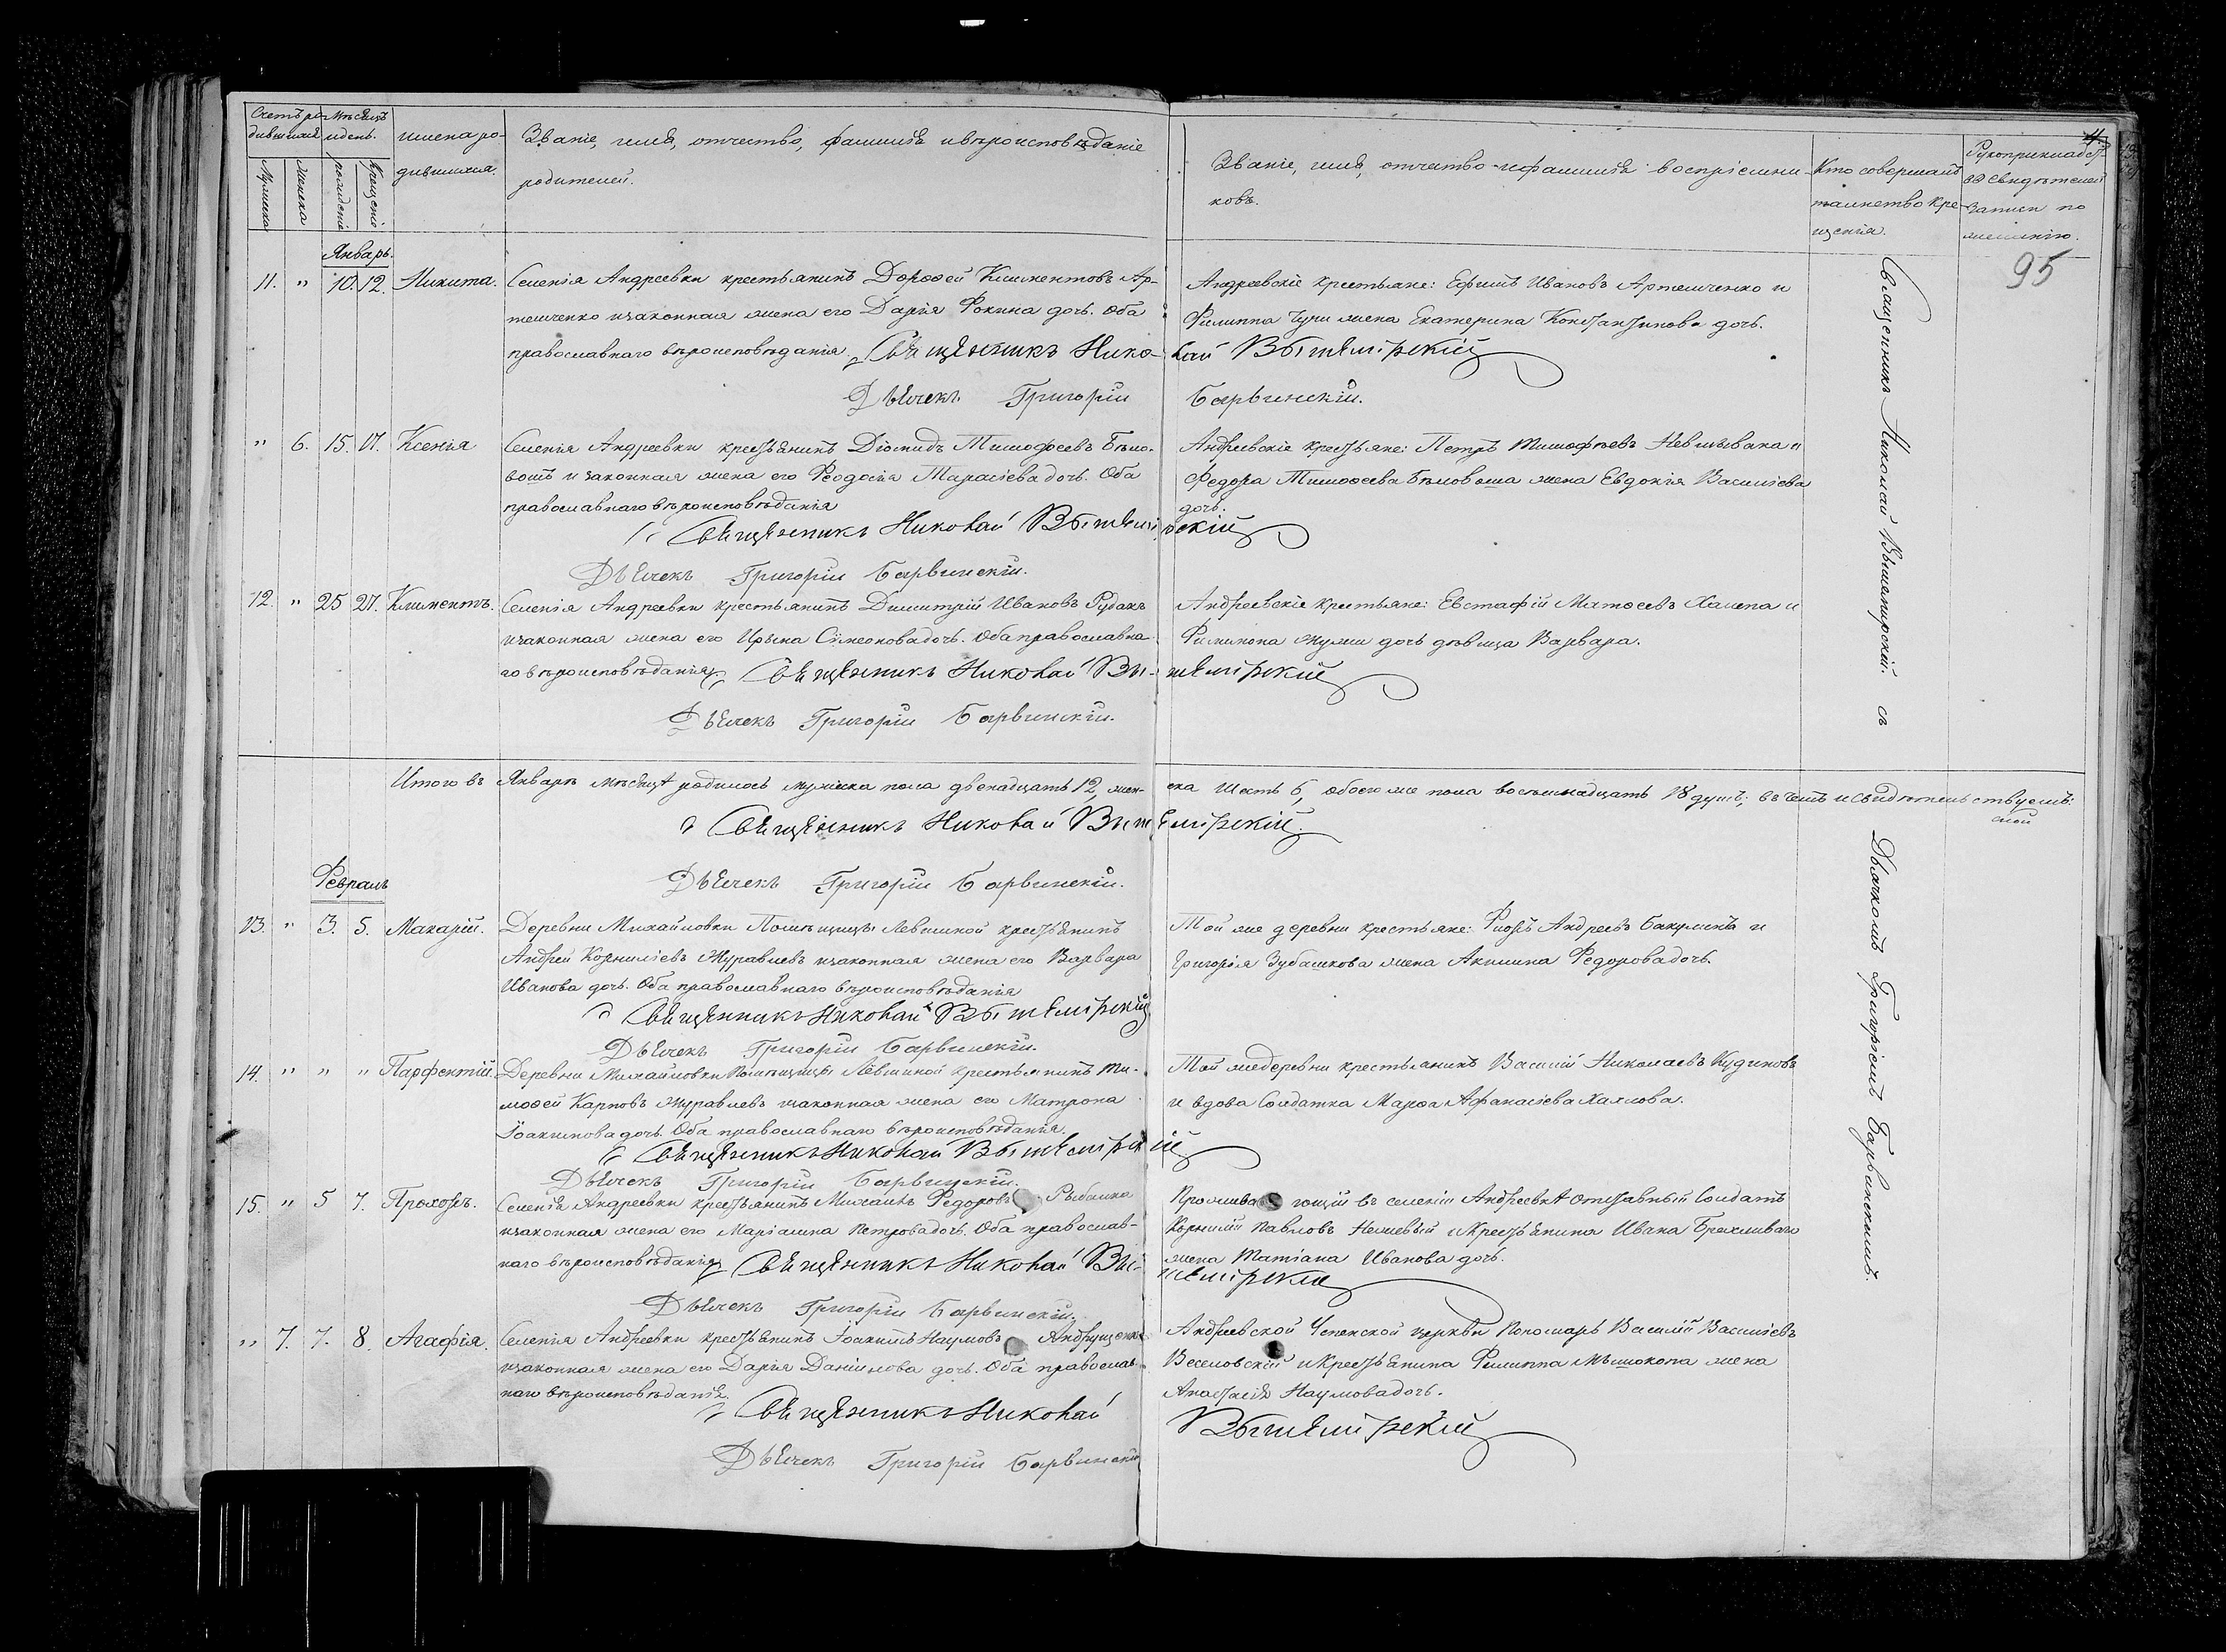 Счетъ ро-
дившихся
Мѣсяцъ
и день.
Мужеска
Женска
рожденія
крещенія
имена ро-
дившихся.
Званіе, имя, отчество, фамилія и вѣроисповѣданіе
родителей.
Званіе, имя, отчество и фамилія воспріемни-
ковъ.
Кто совершалъ
таинство кре-
щенія.
Рукоприкладст.
свидѣтелей
записи по
желанію.
4.
95
Январь.
11. " 10. 12. Никита.
Селенія Андреевки крестьянинъ Дорофей Климентовъ Ар-
темченко и законная жена его Дарія Фокина дочь. Оба
православнаго вѣроисповѣданія.
Андреевскіе крестьяне: Ефимъ Ивановъ Артемченко и
Филиппа Чучи жена Екатерина Константинова дочь.
Священникъ Николай Вышемірскій
Дьячекъ Григорій Барвинскій.
" 6. 15. 17. Ксенія
Селенія Андреевки крестьянинъ Діомидъ Тимофеевъ Бѣло-
вошъ и законная жена его Феодосія Тарасіева дочь. Оба
православнаго вѣроисповѣданія
Андреевскіе крестьяне: Петръ Тимофѣевъ и
Федора Тимоѳеева Бѣловоша жена Евдокія Василіева
дочь.
Священникъ Николай Вышемірскій
Дьячекъ Григорій Барвинскій.
12. " 25 27. Климентъ.
Селенія Андреевки крестьянинъ Димитрій Ивановъ Рудакъ
и законная жена его Ирина Сѵмеонова дочь. Оба православна-
го вѣроисповѣданія
Андреевскіе крестьяне: Евстафій Матѳеевъ Халепа и
Филимона дочь дѣвица Варвара.
Священникъ Николай Вышемірскій
Дьячекъ Григорій Барвинскій.
Итого въ Январѣ мѣсяцѣ родилось мужеска пола двенадцать 12, жен-
ска шесть 6, обоего же пола восемнадцать 18 душъ; въ чемъ и свидѣтельствуемъ:
Священникъ Николай Вышемірскій.
Дьячекъ Григорій Барвинскій.
Февраль
13. " 3. 5. Макарій.
Деревни Михайловки Помѣщицы Левшиной крестьянинъ
Андрей Корниліевъ Журавлевъ и законная жена его Варвара
Иванова дочь. Оба православнаго вѣроисповѣданія
Той же деревни крестьяне: Андреевъ и
Григорія Зубашкова жена Акилина Федорова дочь.
Священникъ Николай Вышемірскій
Дьячекъ Григорій Барвинскій.
14. " " " Парфентій.
Деревни Михайловки Помѣщицы Левшиной крестьянинъ Ти-
моѳей Карповъ Журавлевъ и законная жена его Матрона
Іоакимова дочь. Оба православнаго вѣроисповѣданія.
Той же деревни крестьянинъ Василій Николаевъ Кудиновъ
и вдова Солдатка Марѳа Афанасіева Хахлова.
Священникъ Николай Вышемірскій
Дьячекъ Григорій Барвинскій.
15. " 5 7. Прохоръ.
Селенія Андреевки крестьянинъ Михаилъ Федоровъ Рыбалка
и законная жена его Маріамна Петрова дочь. Оба православ-
наго вѣроисповѣданія
Проживающій въ селеніи Андреевкѣ отставный Солдатъ
Корнилій Павловъ и Крестьянина Ивана Брехливаго
жена Татіана Иванова дочь.
Священникъ Николай Вышемірскій
Дьячекъ Григорій Барвинскій.
" 7. 7. 8. Агафія.
Селенія Андреевки крестьянинъ Іоакимъ Наумовъ Андрущенко
и законная жена его Дарія Даніилова дочь. Оба православ-
наго вѣроисповѣданія.
Андреевской церкви Пономарь Василій Василіевъ
Веселовскій и Крестьянина Филиппа жена
Анастасія Наумова дочь.
Священникъ Николай Вышемірскій
Дьячекъ Григорій Барвинскій
Священникъ Николай Вышемірскій съ
Дьячкомъ Григоріемъ Барвинскимъ.